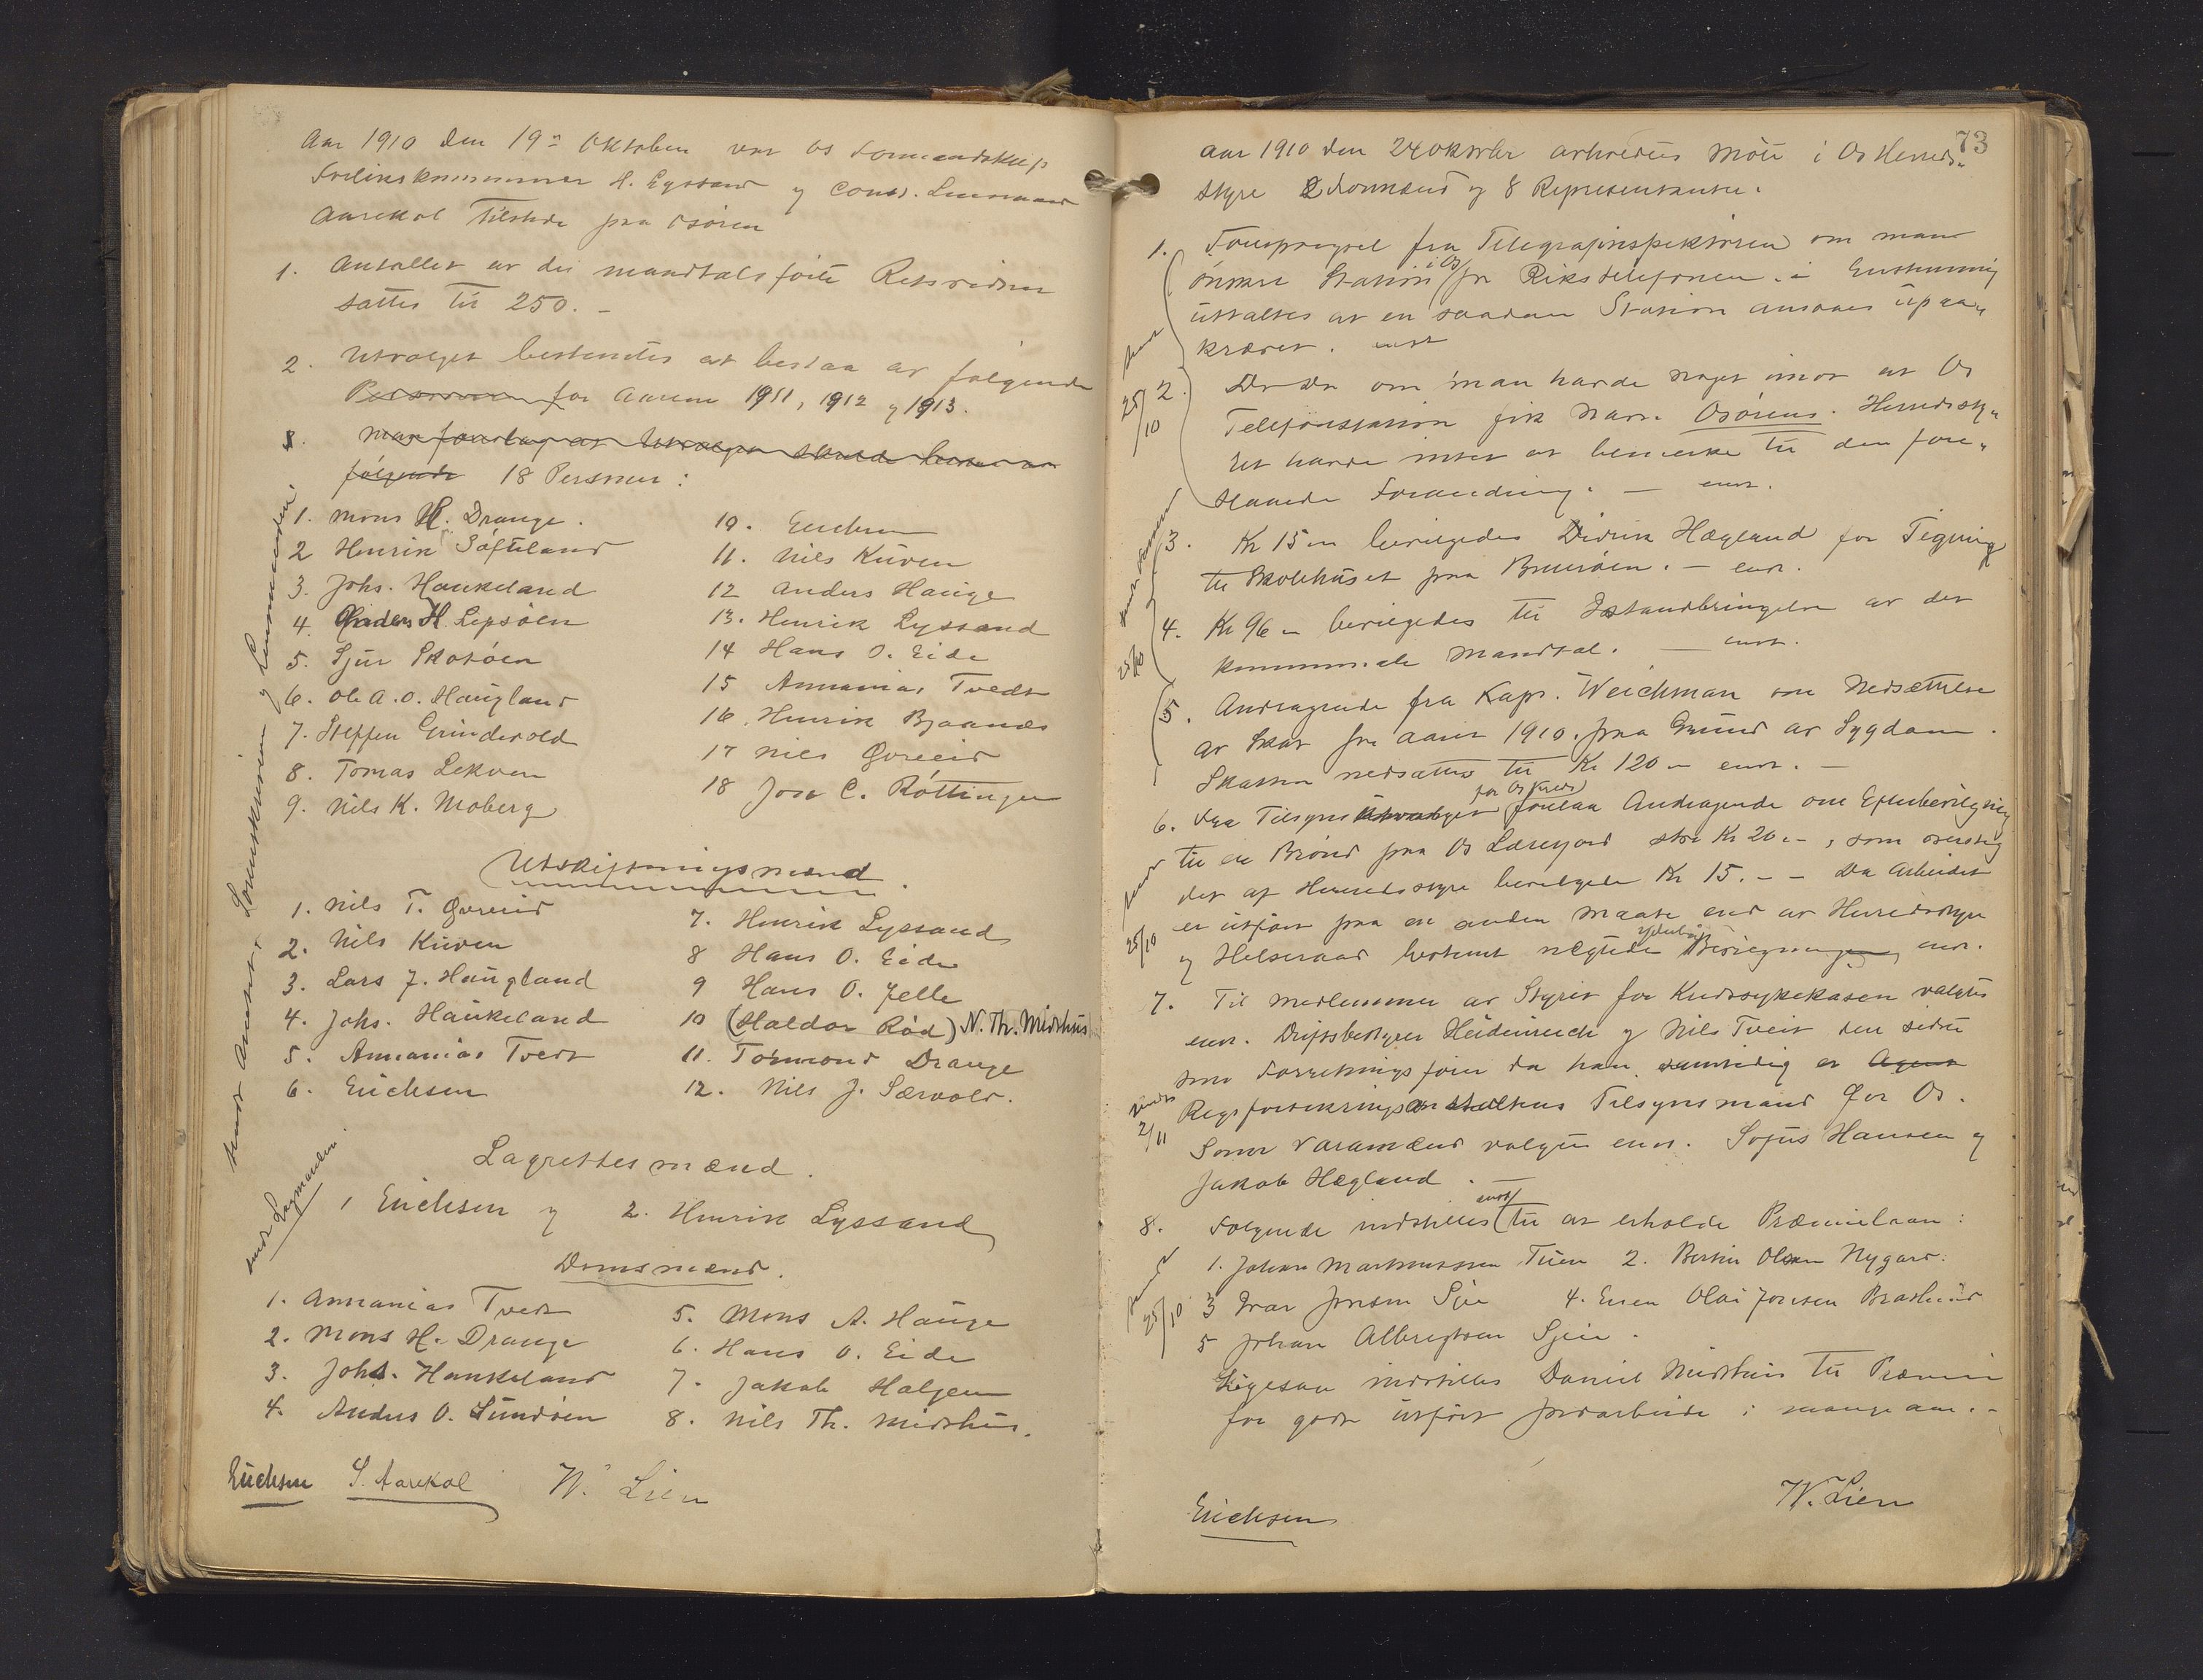 Aar 1910 den 19de Oktober var Os Formandskap
Forlikskommissær H. Lyssand og Const. Lensmand
Aarekol tilstede paa Osøren
1. Antallet av de mandtalsførte Retsvidner
sattes til 250. -
2. Utvalget bestemtes at bestaa av følgende
Personer for Aarene 1911, 1912 og 1913.
3. Man foreslag at Utvalget skulde bestaa av
følgende 18 Personer:
1. Mons H. Drange.
2 Henrik Søfteland
3. Johs. Haukeland
4. Anders H. Lepsøen
5. Sjur Skotøen
6. Ole A. O. Haugland
7. Steffen Grindevold
8. Tomas Lekven
9. Nils K. Moberg
10. Erichsen
11. Nils Kuven
12 Anders Hauge
13. Henrik Lyssand
14 Hans O. Eide
15 Annanias Tvedt
16. Henrik Bjaanæs
17 Nils Gvreeid
18 Jose C. Røttingen
Utskiftningsmænd.
1. Nils T. Gvreeid
2. Nils Kuven
3. Lars J. Haugland
4. Johs. Haukeland
5. Annanias Tvedt
6. Erichsen
7. Henrik Lyssand
8 Hans O. Eide
9 Hans O. Jelle
10 (Haldor Rød) N. Th. Midthus
11. Tormond Drange
12. Nils J. Særvold.
Lagrettesmænd.
1 Erichsen og 2. Henrik Lyssand
Domsmænd.
1. Annanias Tvedt
2. Mons H. Drange
3. Johs. Haukeland
4. Anders O. Sundøen
5. Mons A. Hauge
6. Hans O. Eide
7. Jakob Haljem
8. Nils Th. Midthus.
Erichsen S. Aarekol W. Lien
Sendt Amtet, Sorenskriveren og Lensmanden.
sendt Lagmanden.
73
Aar 1910 den 24 Oktober avholdtes Møte i Os Herreds-
styre 2 Formænd og 8 Representanter.
1. Forespørgsel fra Telegrafinspektøren om man
ønsket Station i Os for Rikstelefonen. i Enstemmig
uttaltes at en saadan Station ansaaes upaa-
krævet. enst
2. Do Do om man havde noget imot at Os
Telefonstation fik Navn Osøren. Herredssty-
ret havde intet at bemerke til den fore-
slaaede Forandring. — enst.
3. Kr 15 „ bevilgedes Didrik Hægland for Tegning
til Skolehuset paa Bruarøen. — enst.
4. Kr 96 „ bevilgedes til Istandbringelse av det
kommunale Mandtal. — enst.
5. Andragende fra Kapt. Weichman om Nedsættelse
av Skat for Aaret 1910. paa Grund av Sygdom.
Skatten nedsattes til Kr 120 „ enst. —
6. Fra Tilsynsutvalget for Os Kreds forelaa Andragende om Efterbevilgning
til en Brønd paa Os Lærerjord stor Kr 20.-, som oversteg
det af Herredsstyre bevilgede Kr 15. - - Da Arbeidet
er utført paa en anden Maate end av Herredsstyre
og Helseraad bestemt nægtedes yderligere Bevilgningen, enst.
7. Til Medlemmer av Styret for Kredssykekassen valgtes
enst. Driftsbestyrer Heidenreich og Nils Tveit den sidste
som Forretningsfører da han samtidig er Agent
Rigsforsikringsanstaltens Tilsynsmand for Os.
Som Varamænd valgtes enst. Sofus Hansen og
Jakob Hægland. —
8. Følgende indstilles enst. til at erholde Præmielaan:
1. Johan Martinussen Tuen 2. Bertin Olsen Nygard.
3 Ivar Jonsen Sjøe 4. Enen Olai Jonsen Brathus
5 Johan Albregtsen Sjøie.
Ligesaa indstilles Daniel Midthus til Præmie
for godt utført Jordarbeide i mange aar. -
25/10
25/10
25/10
2/11
25/10
Erichsen
W. Lien